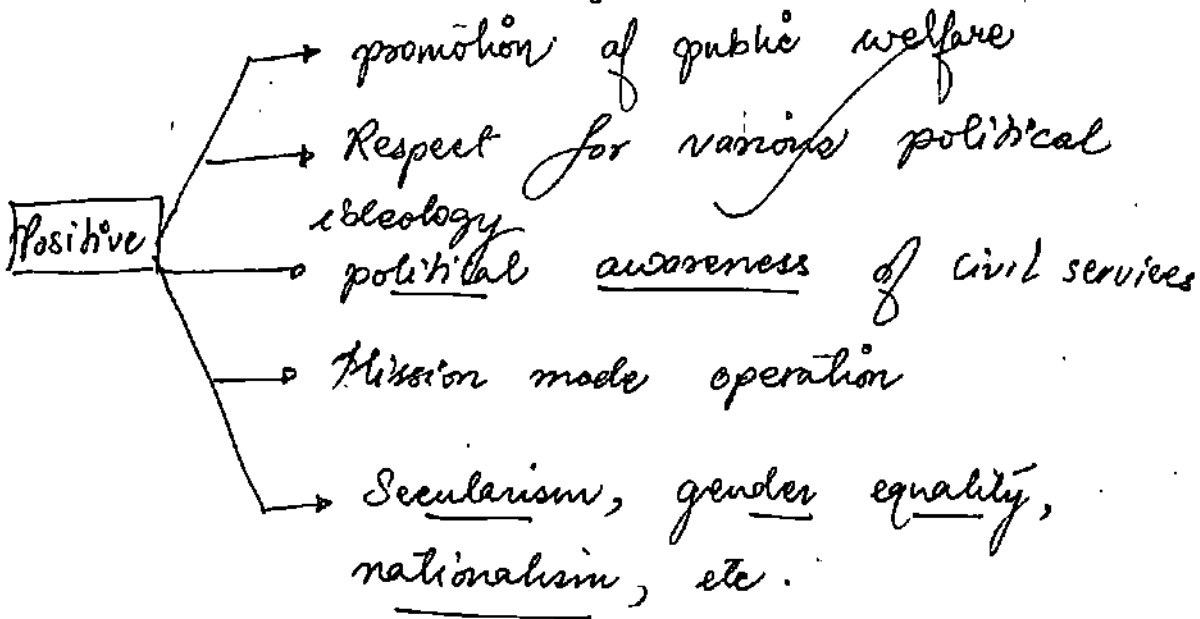 promotion of public welfare
Respect for various political
ideology
Positive
political awareness of civil services
Mission mode operation
Secularism, gender equality,
nationalism, etc.